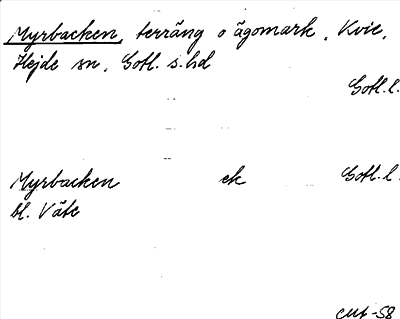 Myrbacken, terräng o ägomark, Kvie,
Hejde sn, Gotl. s. hd
Gotl. l.
Myrbacken ek Gotl. l.
bl. Väte
CMt -58